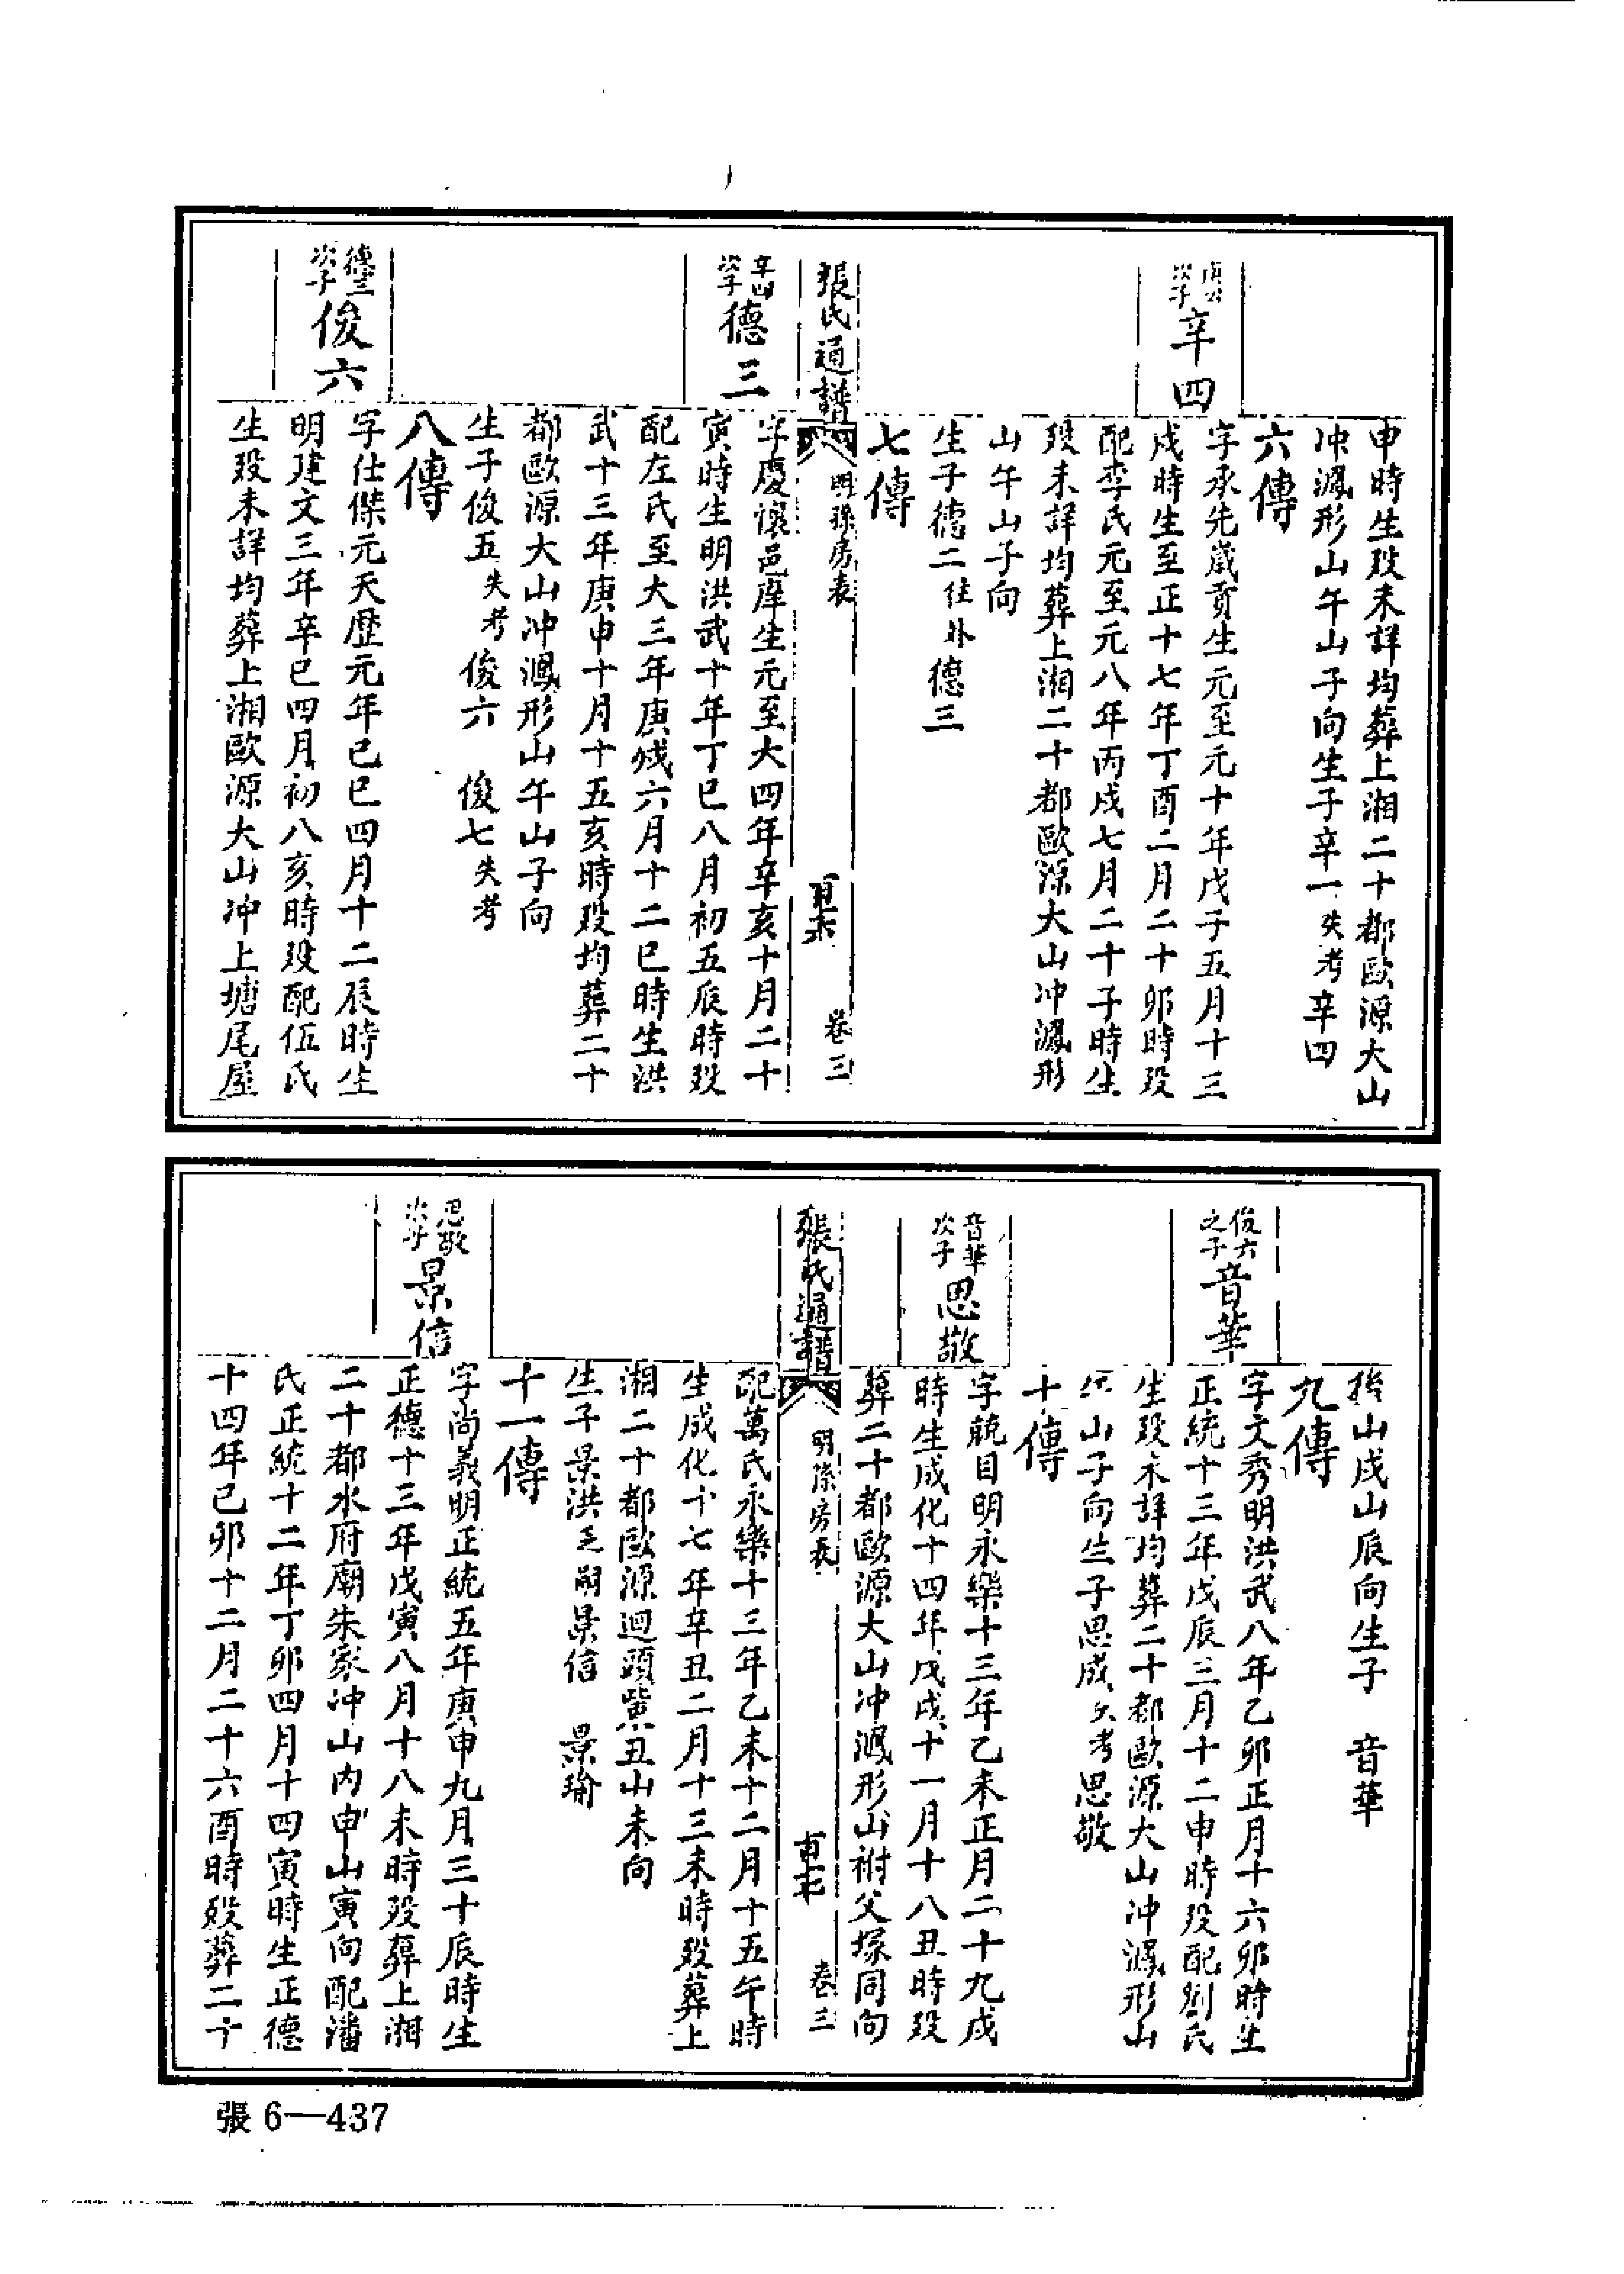 申時生歿未詳均葬上湘二十都歐源大山
冲鳳形山午山子向生子辛一失考辛四
六傳
次子
辛四
字承先歲貢生元至元十年戊子五月十三
戍時生至正十七年丁酉二月二十卯時歿
配李氏元至元八年丙戍七月二十子時生
歿未詳均葬上湘二十都歐源大山冲鳳形
山午山子向
生子德二往外德三
七傳
張氏通譜
明孫房表
卷三
辛四
次子
德三
字慶懷邑庠生元至大四年辛亥十月二十
寅時生明洪武十年丁巳八月初五辰時歿
配左氏至大三年庚戍六月十二巳時生洪
武十三年庚申十月十五亥時歿均葬二十
都歐源大山冲鳳形山午山子向
生子俊五失考俊六 俊七失考
八傳
德三
次子
俊六
字仕傑元天歷元年己巳四月十二辰時生
明建文三年辛巳四月初八亥時歿配伍氏
生歿未詳均葬上湘歐源大山冲上塘尾屋
抬山戍山辰向生子 音華
九傳
俊六
之子
音華
字文秀明洪武八年乙卯正月十六卯時生
正統十三年戊辰三月十二申時歿配劉氏
生歿未詳均葬二十都歐源大山冲鳳形山
山子向生子思成失考思敬
十傳
音華
次子
思敬
字兢目明永樂十三年乙未正月二十九戍
時生成化十四年戊戍十一月十八丑時歿
葬二十都歐源大山冲鳳形山祔父塚同向
張氏通譜
明孫房表
卷三
配萬氏永樂十三年乙未十二月十五午時
生成化十七年辛丑二月十三未時歿葬上
湘二十都歐源迴頭嘴丑山未向
生子景洪乏嗣景信 景瑜
十一傳
思敬
次子
景信
字尚義明正統五年庚申九月三十辰時生
正德十三年戊寅八月十八未時歿葬上湘
二十都水府廟朱家冲山内申山寅向配潘
氏正統十二年丁卯四月十四寅時生正德
十四年己卯十二月二十六酉時歿葬二十
張 6—437